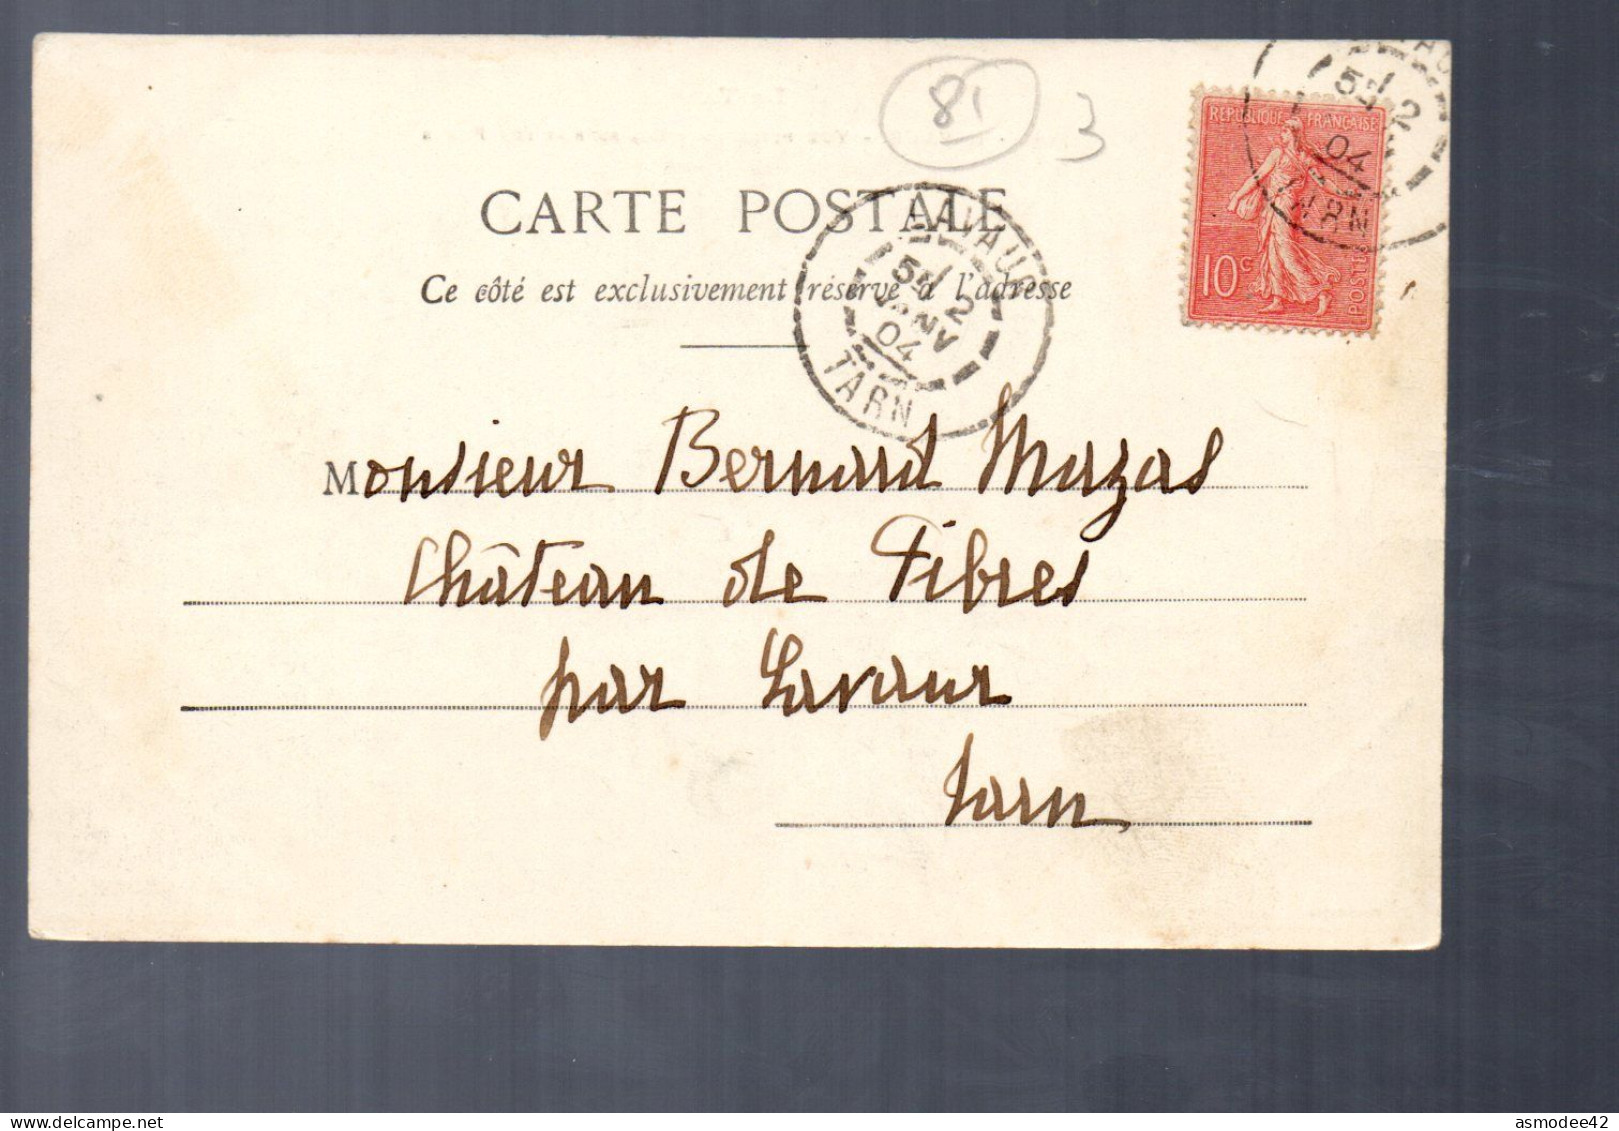 81
3
RÉPUBLIQUE FRANÇAISE
10c
POSTES
5E 2
04
TARN
CARTE POSTALE
Ce côté est exclusivement réservé à l'adresse
LAVAUR
5E 2
JANV
04
TARN
Monsieur Bernard Mazas
Château de Fibres
par Lavaur
Tarn
asmodee42